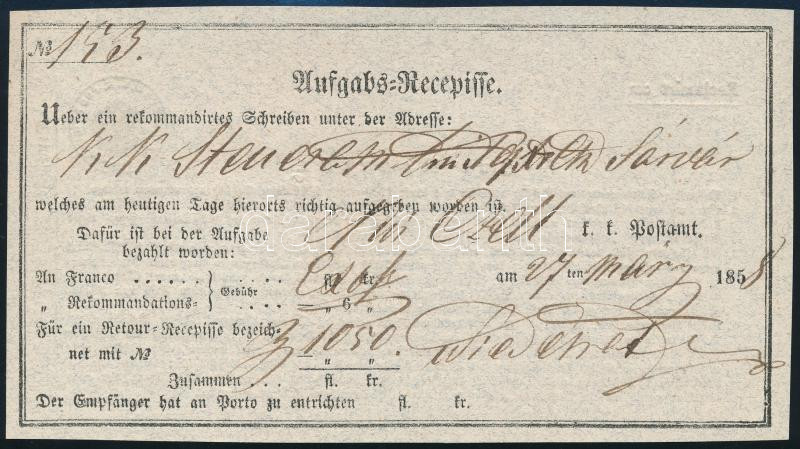 № 153.
Aufgabs-Recepisse.
Ueber ein rekommandirtes Schreiben unter der Adresse:
KK Steueramt Sárvár
welches am heutigen Tage hierorts richtig aufgegeben worden ist.
Dafür ist bei der Aufgabe bezahlt worden:
Czell k. k. Postamt.
An Franco . . . . . . } Gebühr . . . . . fl. kr.
„ Rekommandations- . . . . — „ 6 „
am 27 ten März 1858
Für ein Retour-Recepisse bezeich-
net mit № 1050. — „ „
Zusammen . . . fl. kr.
Der Empfänger hat an Porto zu entrichten fl. kr.
darabanth